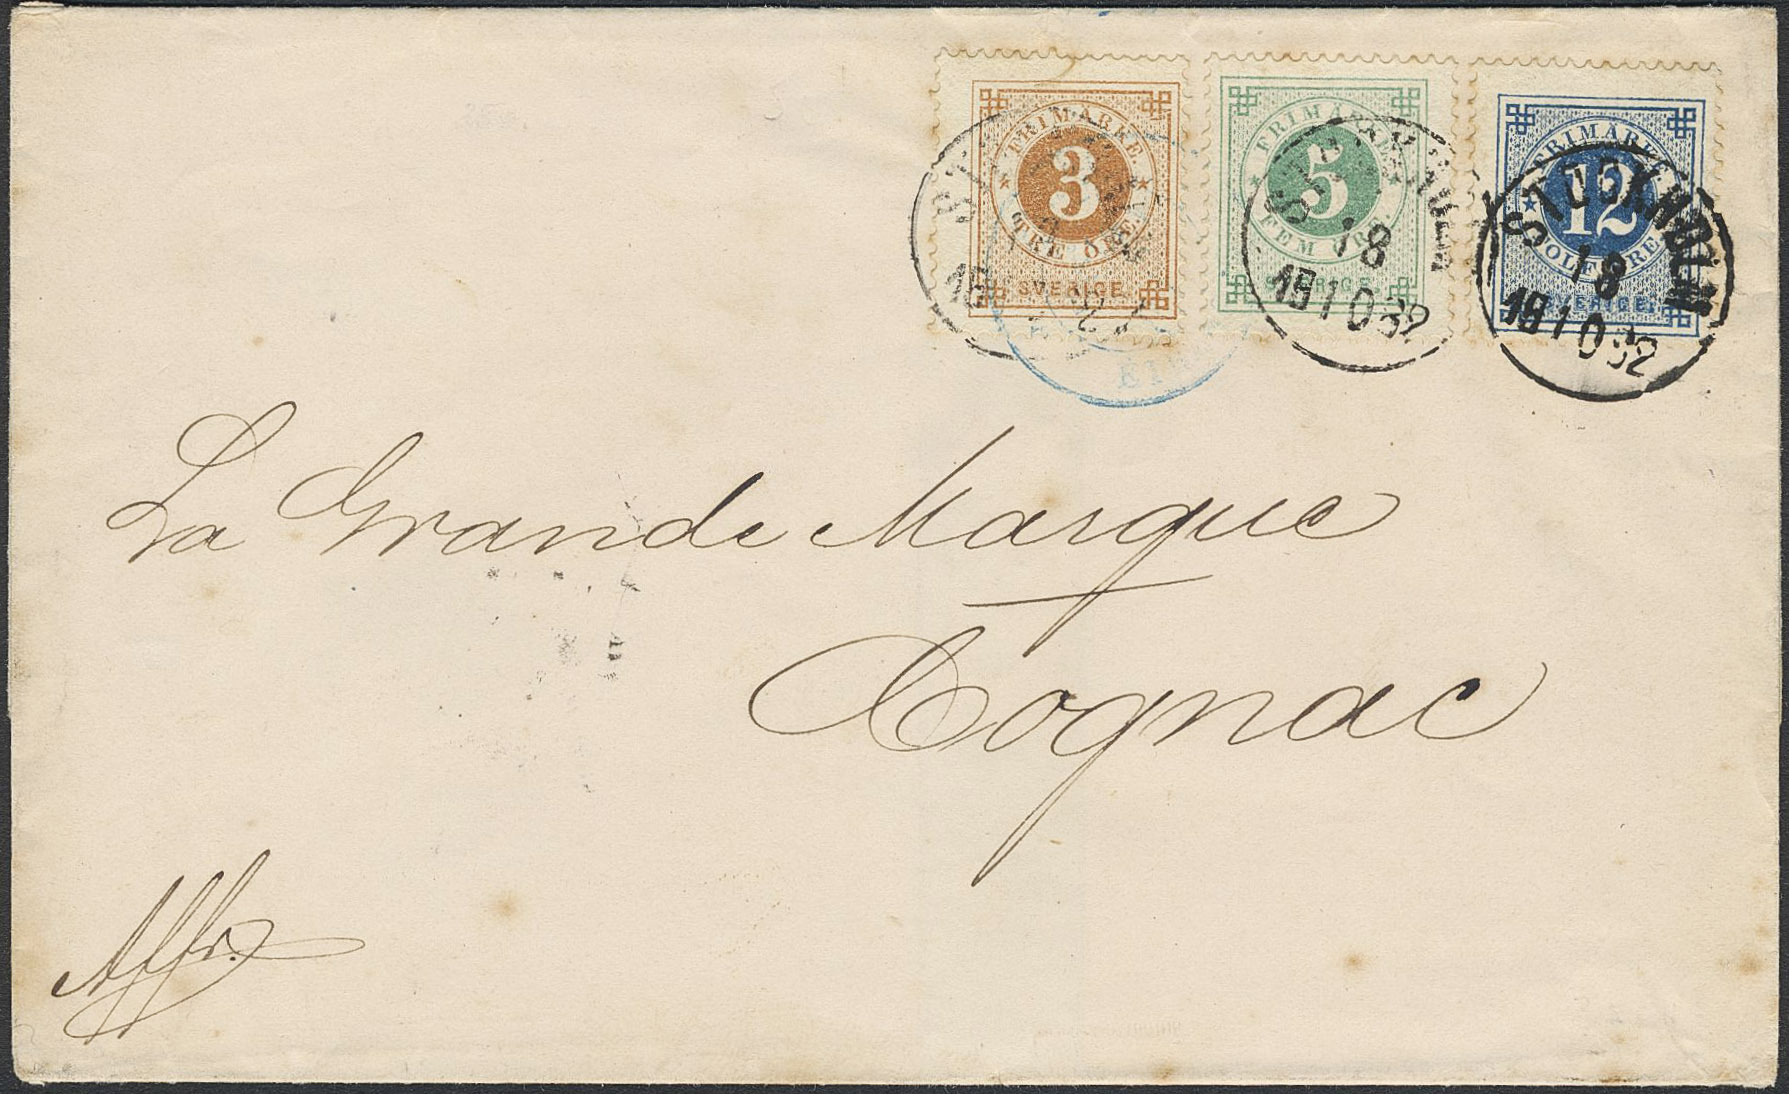 FRIMÄRKE
3
TRE ÖRE
SVERIGE
FRIMÄRKE
5
FEM ÖRE
SVERIGE
FRIMÄRKE
12
TOLF ÖRE
SVERIGE
STOCKHOLM
18
STOCKHOLM
18
La Grande Marque
Cognac
Affr.